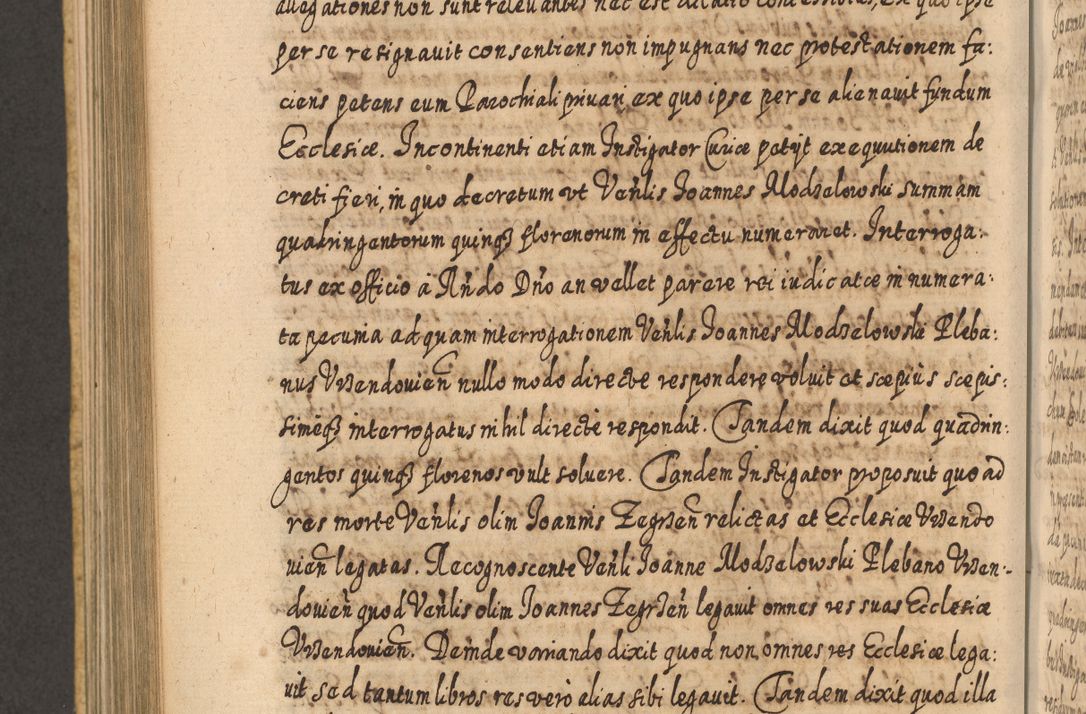 allegationes non sunt relevantes nec est dilatio concessibilis, ex quo ipse
per se resignavit consentiens non impugnans nec protestationem fa:
ciens petens eum Parochiali privari, ex quo ipse per se alienavit fundum
Ecclesiæ. Incontinenti etiam Instigator Curiæ petijt exequutionem de
creti fieri, in quo decretum ut Veñlis Joannes Modzelowski summam
quadringentorum quinqȝ florenorum in effectu numeraret. Interroga:
tus ex officio à Rñdo Dño an vellet parere rei iudicatæ in numera:
ta pecunia ad quam interrogationem Veñlis Joannes Modzelowski Pleba:
nus Vrzendovień nullo modo directe respondere voluit et sæpiùs sæpis:
simeqȝ interrogatus nihil directè respondit. Tandem dixit quod quadrin:
gentos quinqȝ florenos vult solvere. Tandem Instigator proposuit quo ad
res morte Veñlis olim Joannis Zegrzeñ relictas et Ecclesiæ Vrzendo
vień legatas. Recognoscente Veñli Joanne Modzelowski Plebano Vrzen-
dovień quod Veñlis olim Joannes Zegrzeñ legavit omnes res suas Ecclesiæ
Vrzendovień. Deinde variando dixit quod non omnes res Ecclesiæ lega:
vit sed tantum libros res verò alias sibi legavit. Tandem dixit quod illa